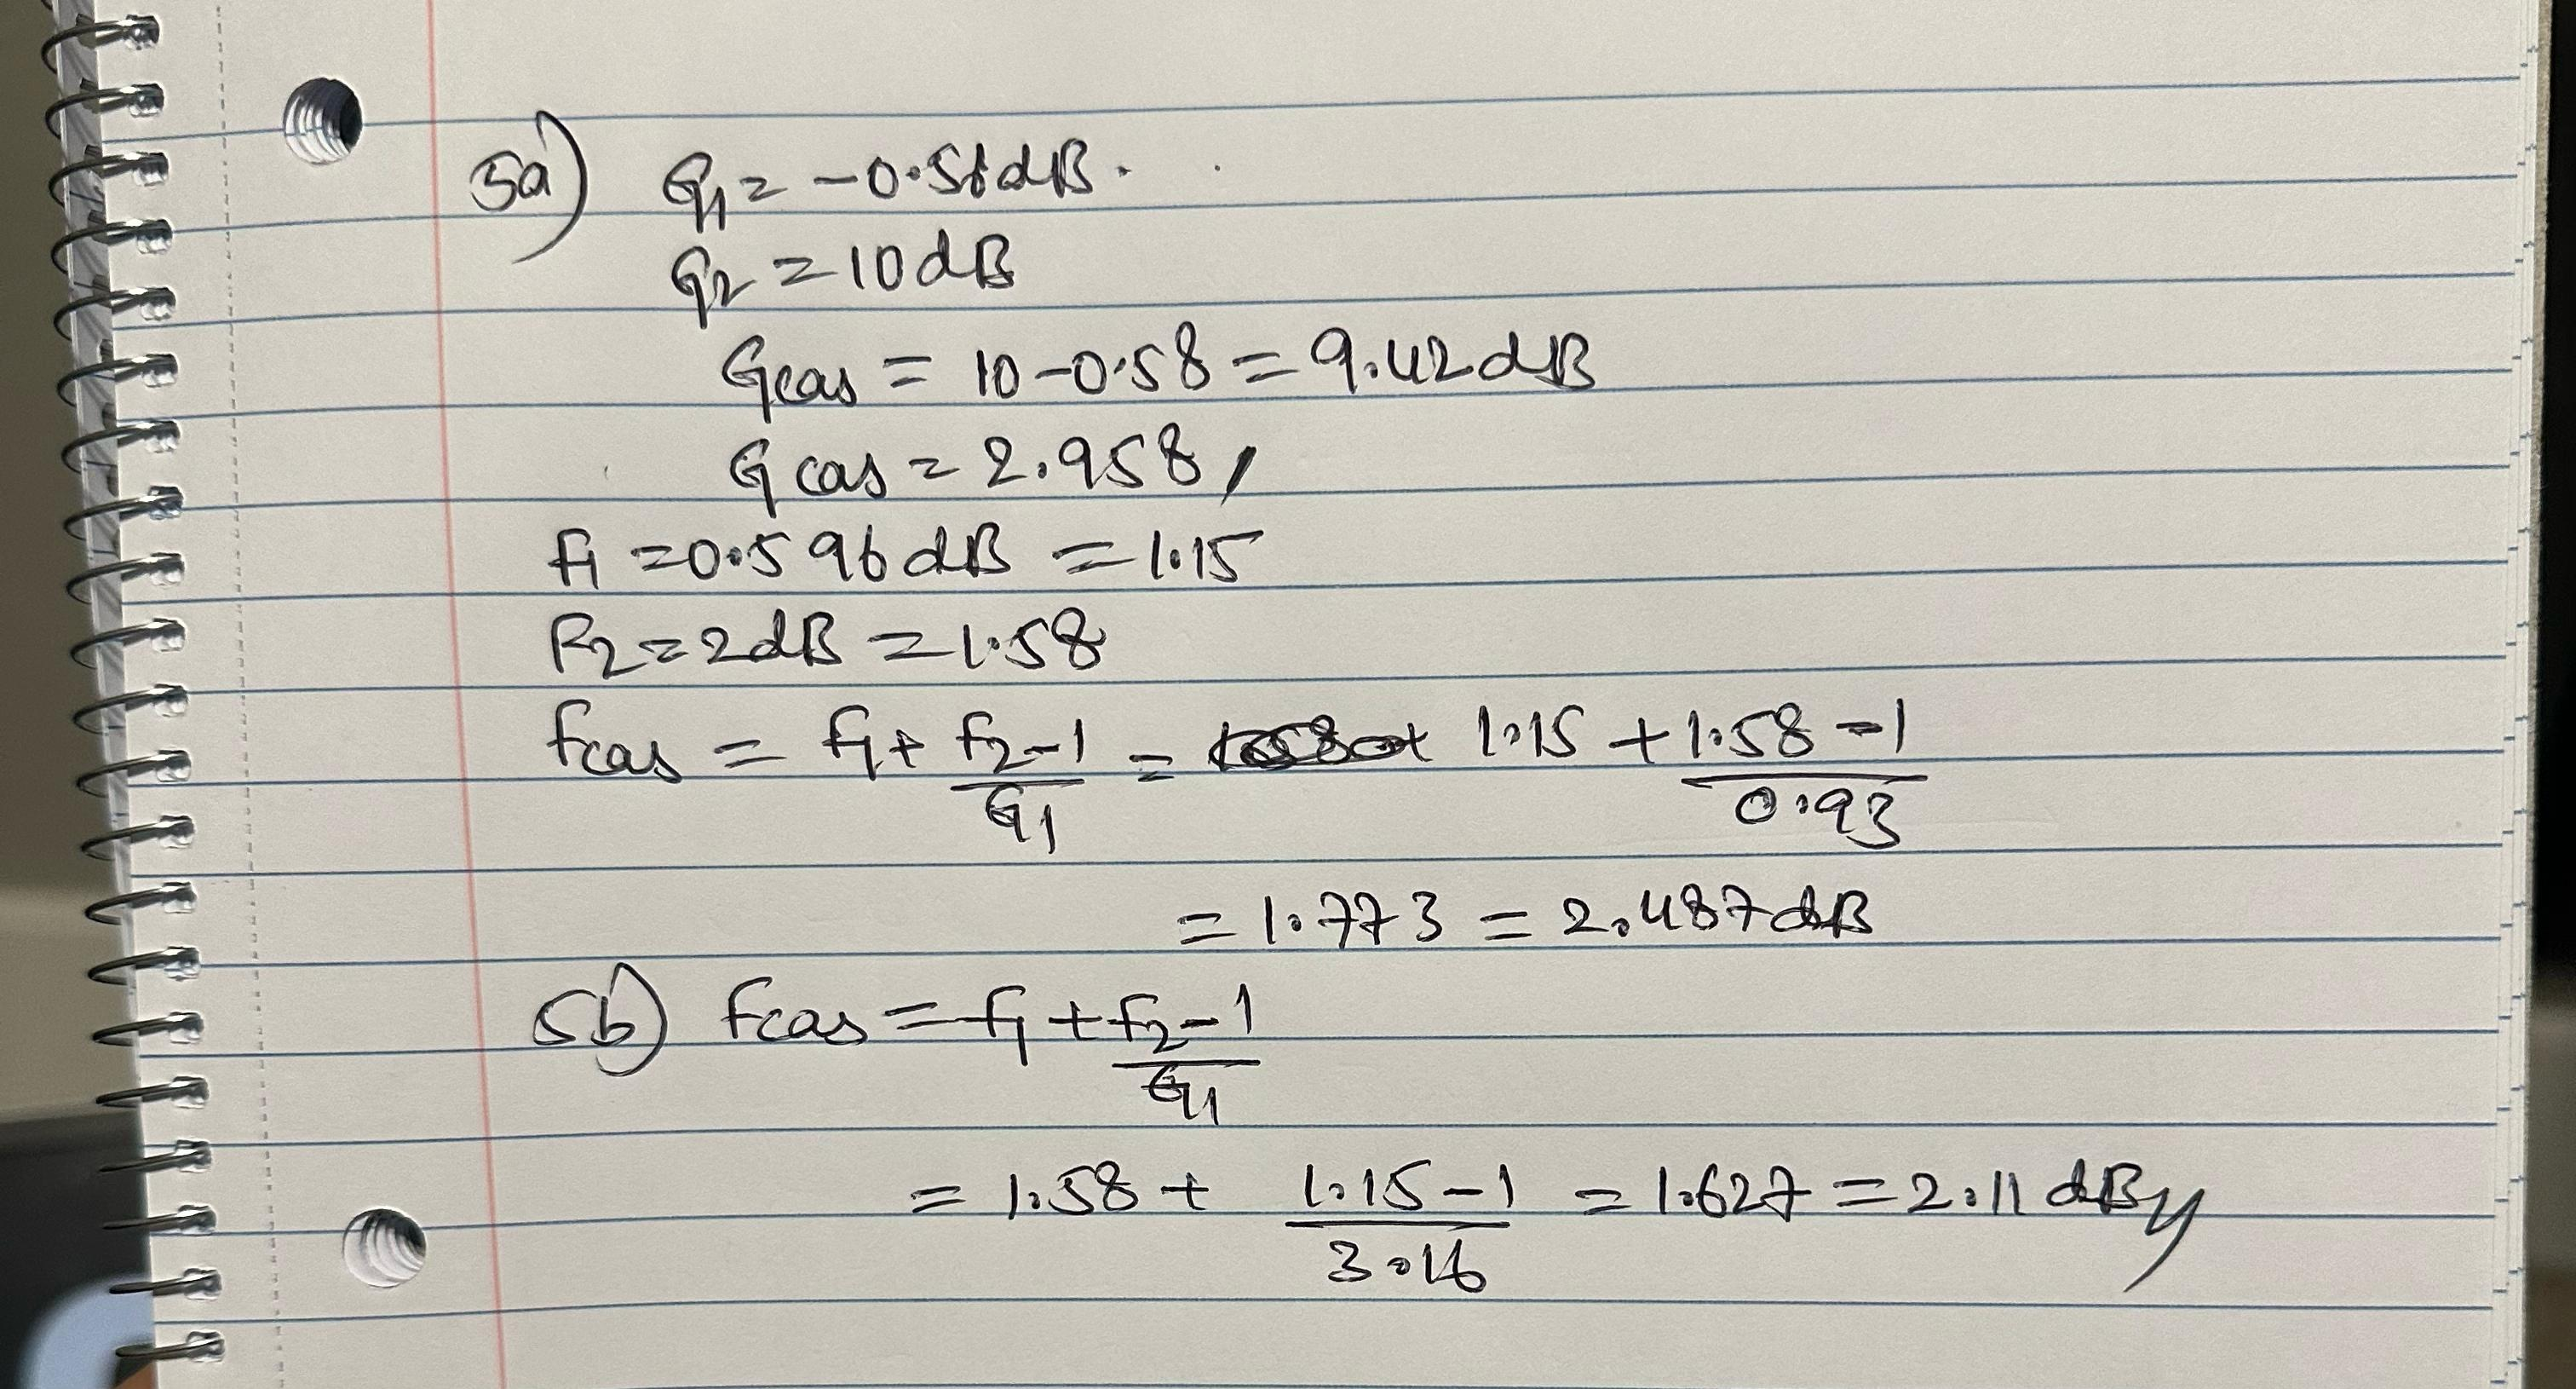 5a) G1 = -0.58dB.
G2 = 10dB
Gcas = 10-0.58 = 9.42dB
Gcas = 2.958,
f1 = 0.596dB = 1.15
F2 = 2dB = 1.58
fcas = f1 + f2-1/G1 = 1.15 + 1.58-1/0.93
= 1.773 = 2.487dB
5b) fcas = f1 + f2-1/G1
= 1.58 + 1.15-1/3.16 = 1.627 = 2.11 dB